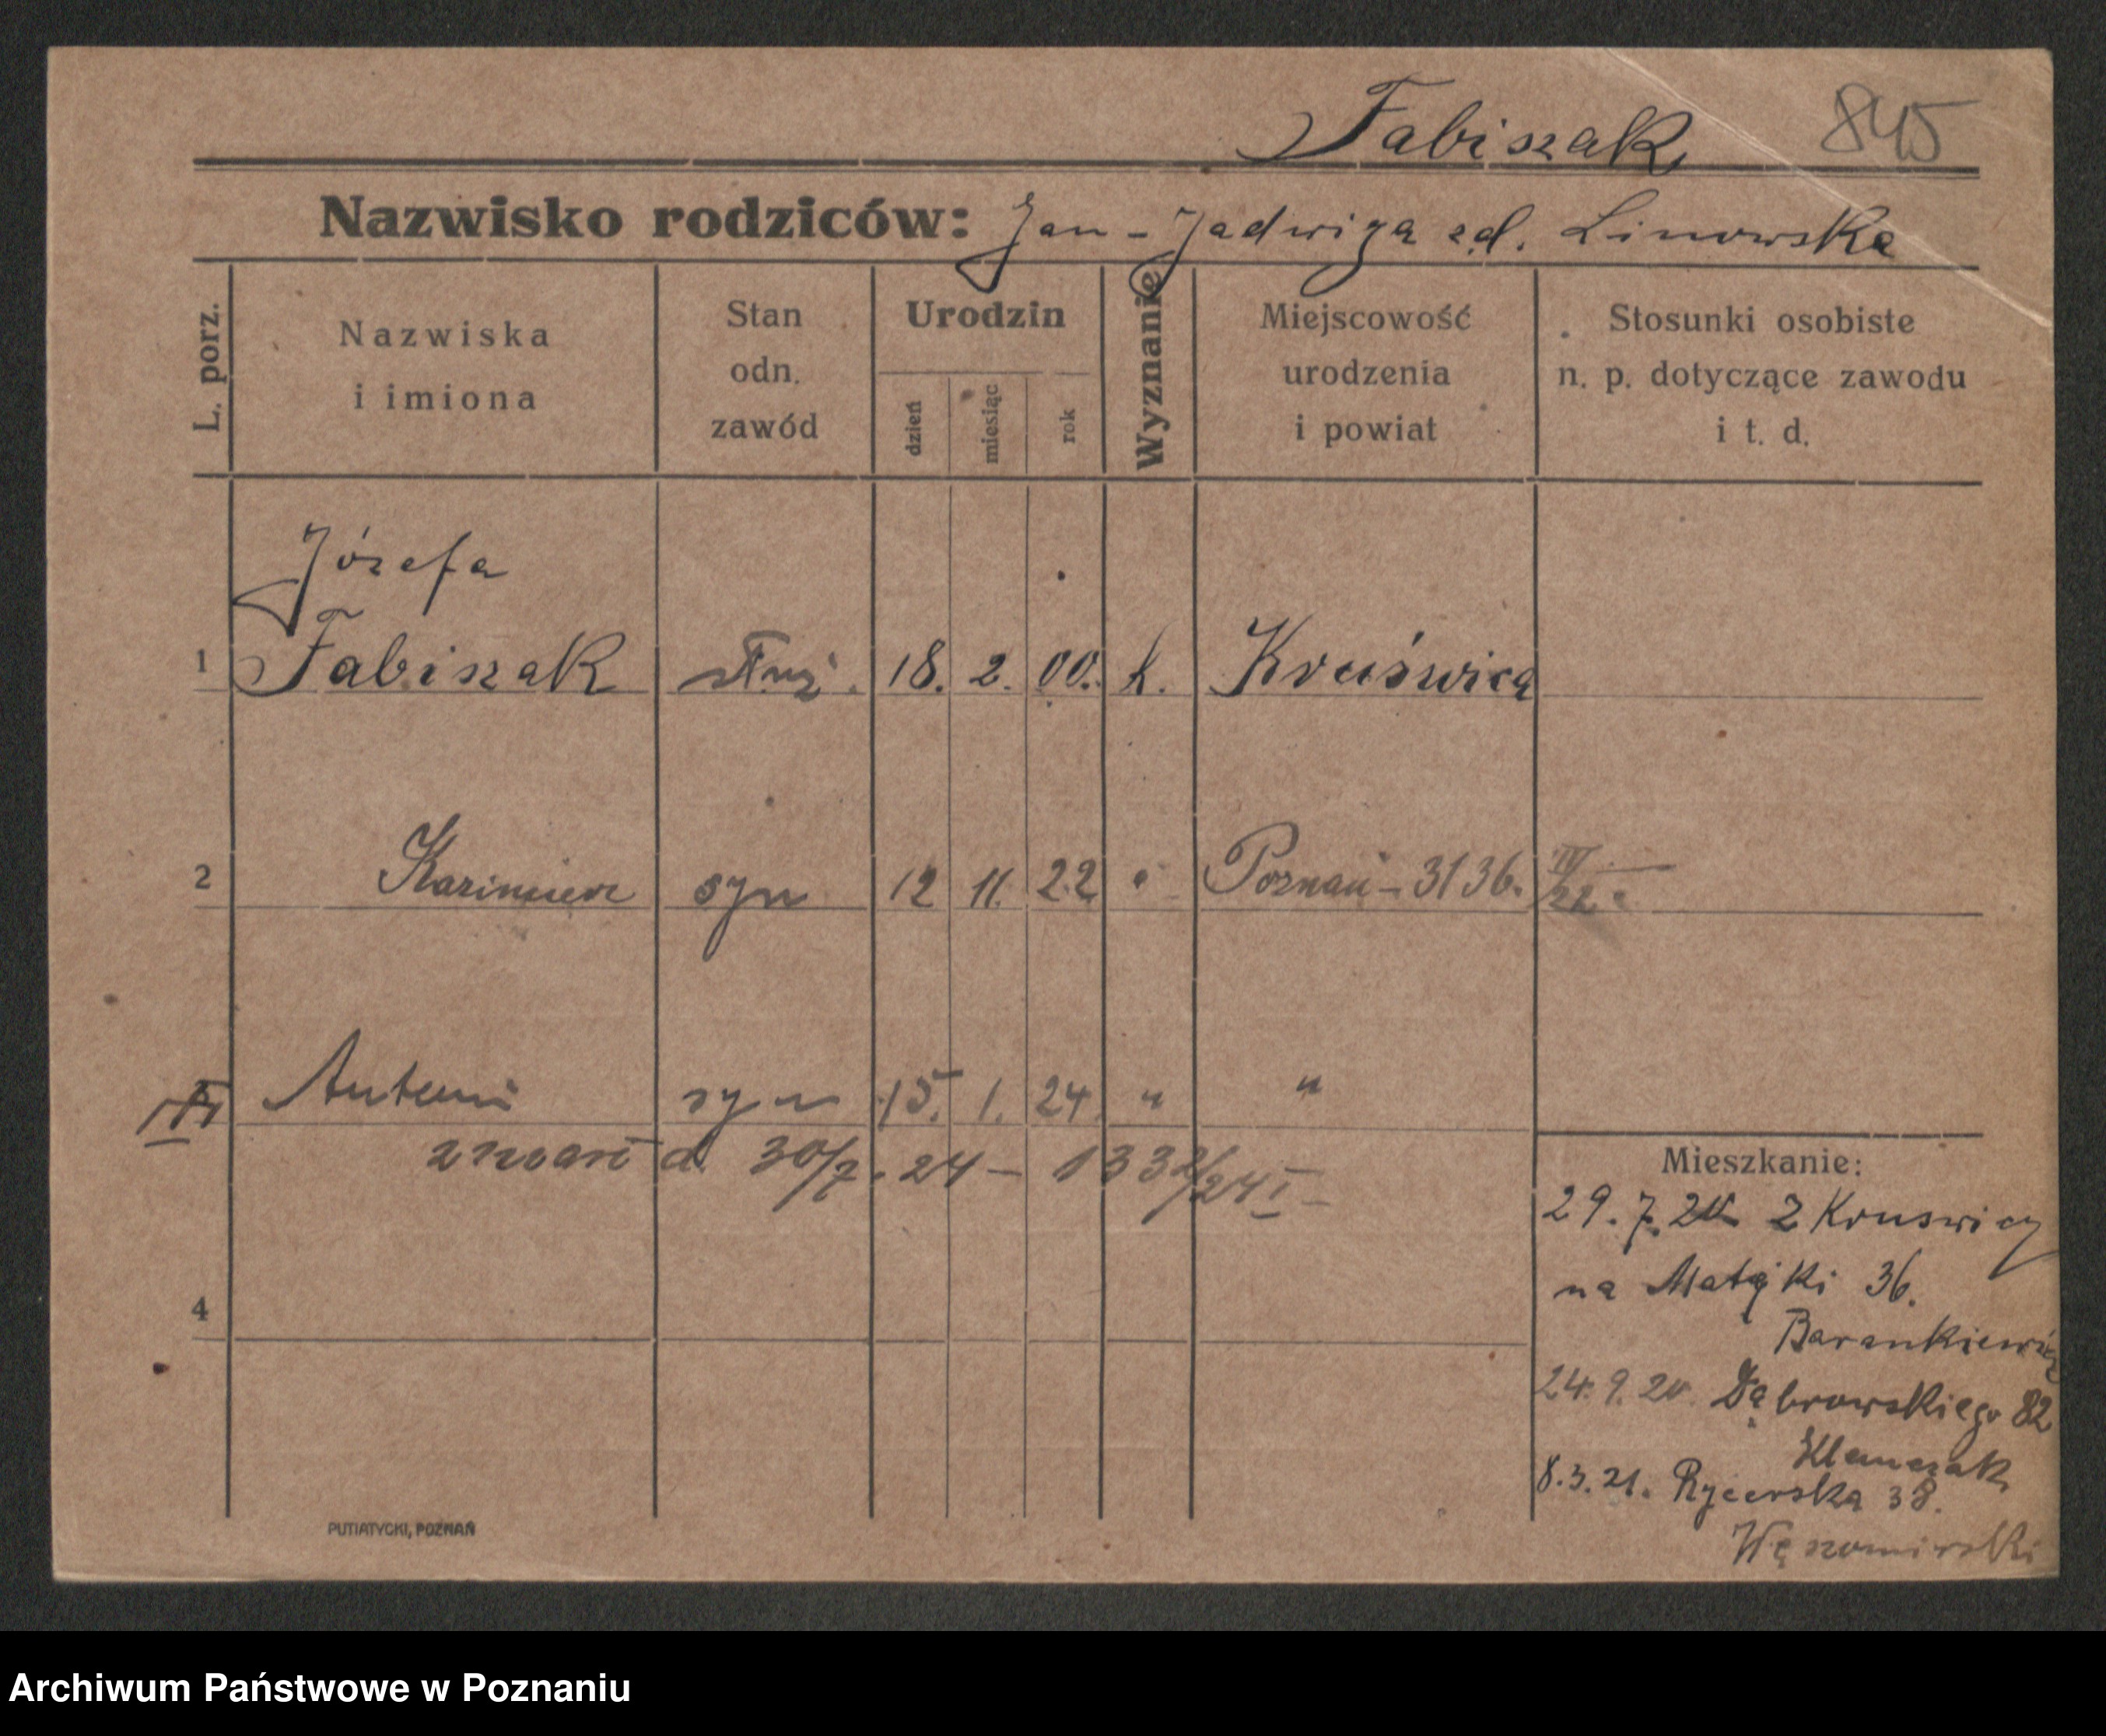 Fabiszak 845
Nazwisko rodziców: Jan - Jadwiga zd. Linowska
L. porz.
Nazwiska
i imiona
Stan
odn.
zawód
Urodzin
dzień
miesiąc
rok
Wyznanie
Miejscowość
urodzenia
i powiat
Stosunki osobiste
n. p. dotyczące zawodu
i t. d.
Józefa
1 Fabiszak służ. 18. 2. 00. k. Kruświca
2 Kazimierz syn 12 11. 22 " Poznań - 3136. IV/22
Antoni syn 15. 1. 24 " "
zmarł d. 30/7. 24 - 1332/24 I
4
Mieszkanie:
29. 7. 20 z Kruswicy
na Matejki 36.
Barankiewicz
24. 9. 20 Dąbrowskiego 82
Klemczak
8. 3. 21. Rycerska 38.
PUTIATYCKI, POZNAŃ
Archiwum Państwowe w Poznaniu